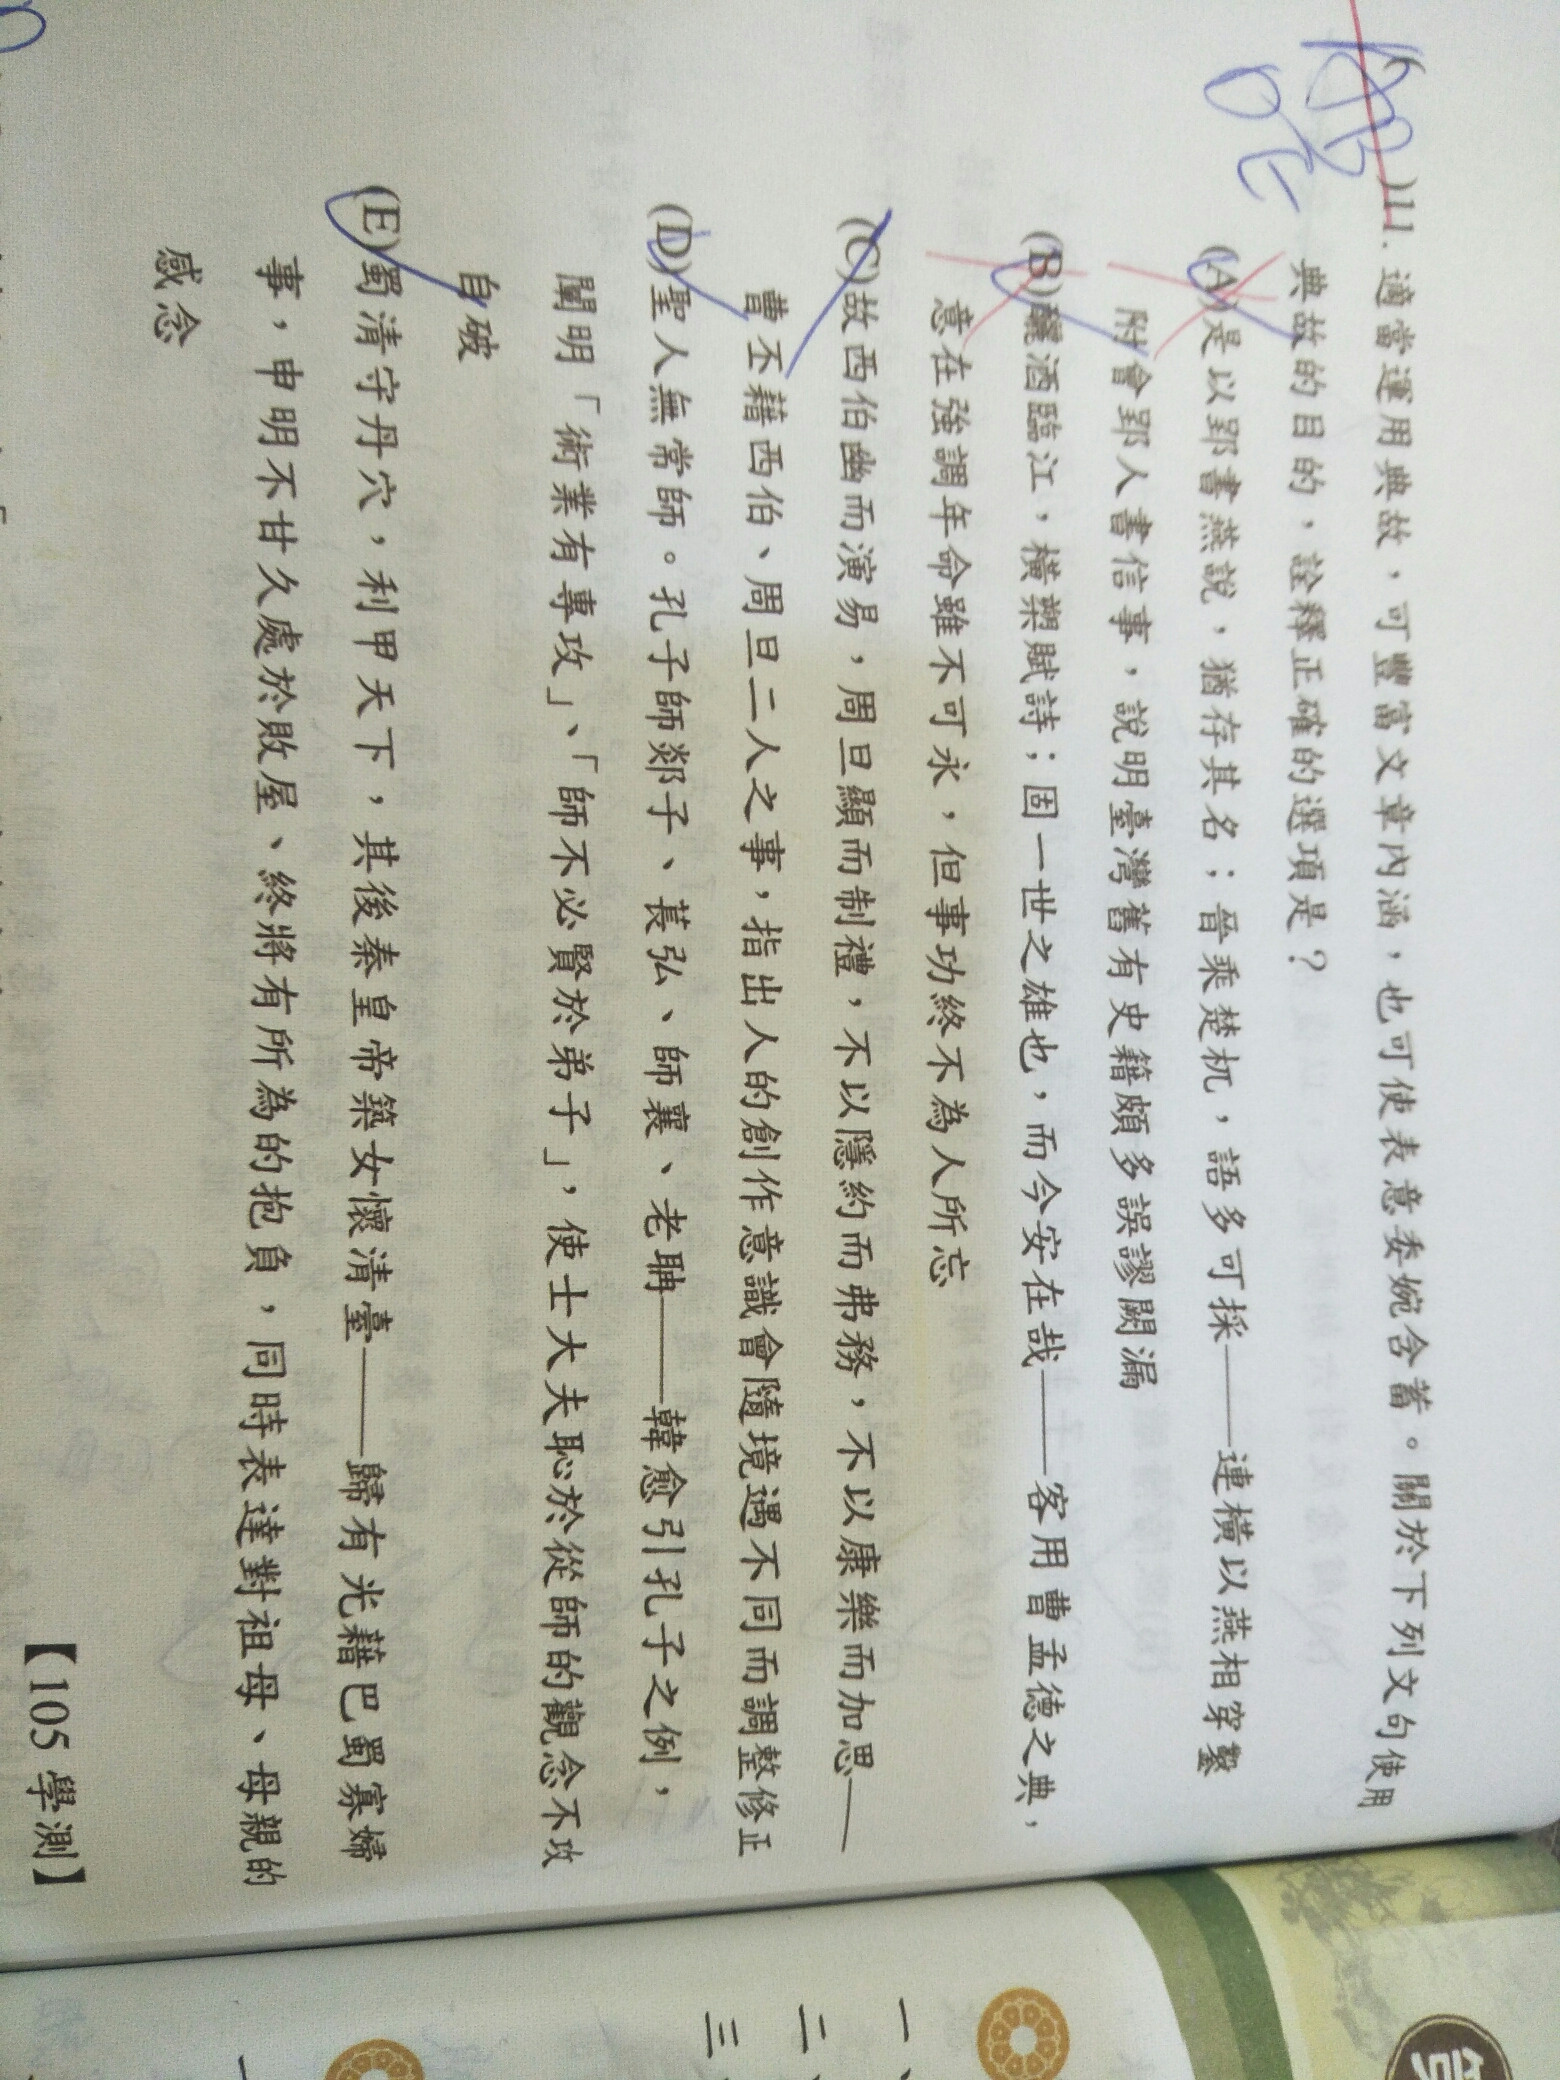 (ABDE)11.適當運用典故，可豐富文章內涵，也可使表意委婉含蓄。關於下列文句使用
典故的目的，詮釋正確的選項是？
(A)是以郢書燕說，猶存其名；晉乘楚杌，語多可採——連橫以燕相穿鑿
附會郢人書信事，說明臺灣舊有史籍頗多誤謬闕漏
(B)釃酒臨江，橫槊賦詩；固一世之雄也，而今安在哉——客用曹孟德之典，
意在強調年命雖不可永，但事功終不為人所忘
(C)故西伯幽而演易，周旦顯而制禮，不以隱約而弗務，不以康樂而加思——
曹丕藉西伯、周旦二人之事，指出人的創作意識會隨境遇不同而調整修正
(D)聖人無常師。孔子師郯子、萇弘、師襄、老聃——韓愈引孔子之例，
闡明「術業有專攻」、「師不必賢於弟子」，使士大夫恥於從師的觀念不攻
自破
(E)蜀清守丹穴，利甲天下，其後秦皇帝築女懷清臺——歸有光藉巴蜀寡婦
事，申明不甘久處於敗屋、終將有所為的抱負，同時表達對祖母、母親的
感念
【105學測】
一、
二、
三、